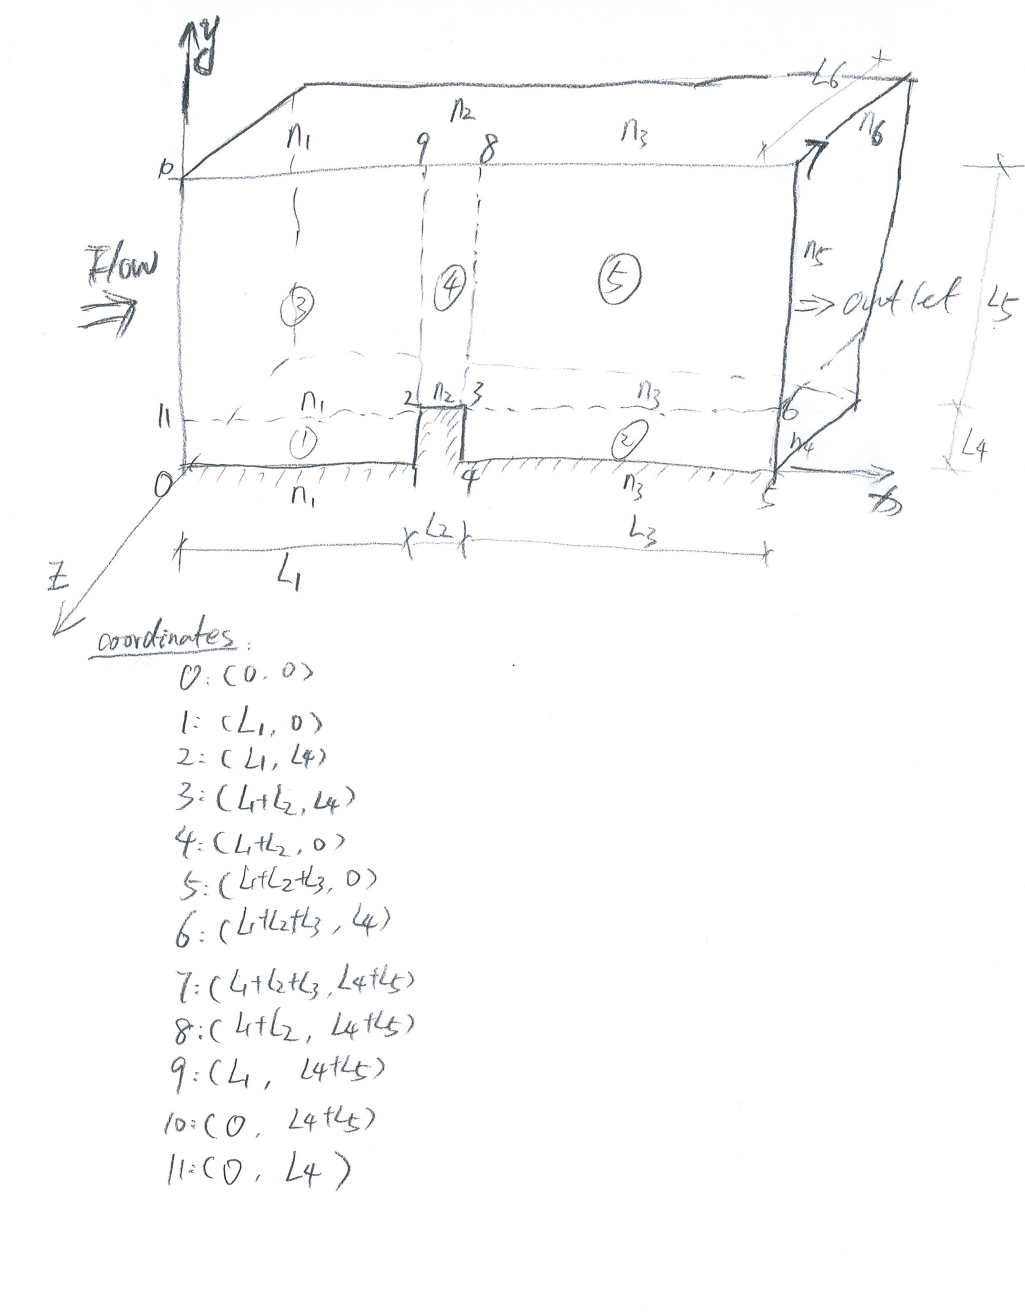 y
L6
n2
n1
9
8
n3
n6
10
7
Flow
n5
3
4
5
outlet
L5
11
n1
2
n2
3
n3
6
1
2
n4
L4
0
n1
4
n3
5
x
L1
L2
L3
Z
coordinates:
0:(0.0)
1:(L1,0)
2:(L1,L4)
3:(L1+L2,L4)
4:(L1+L2,0)
5:(L1+L2+L3,0)
6:(L1+L2+L3,L4)
7:(L1+L2+L3,L4+L5)
8:(L1+L2,L4+L5)
9:(L1,L4+L5)
10:(0,L4+L5)
11:(0,L4)